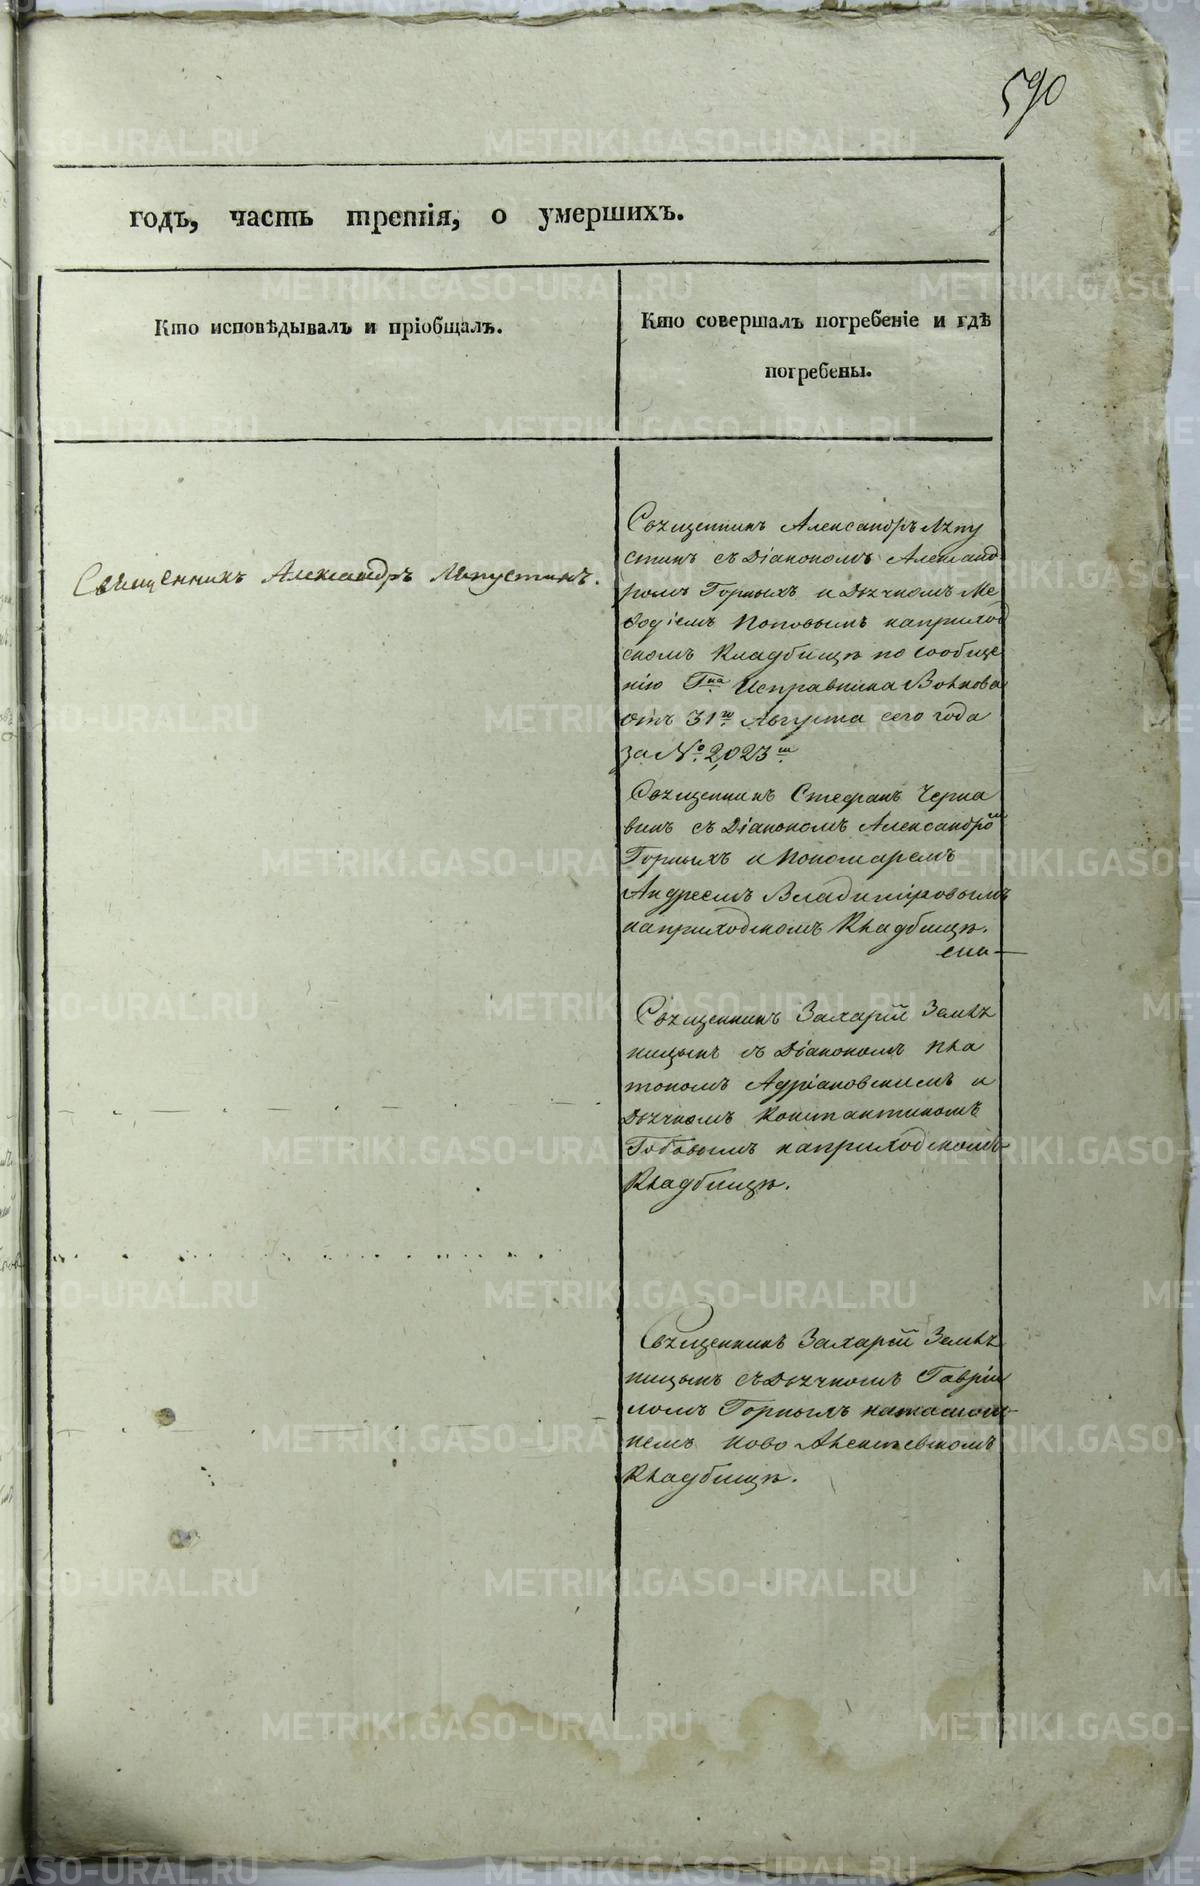 590
годъ, часть третія, о умершихъ.
Кто исповѣдывалъ и пріобщалъ.
Кто совершалъ погребеніе и гдѣ
погребены.
Священникъ Александръ
Священникъ Александръ
стинъ съ Діакономъ Александ
ромъ Горныхъ и Дьячкомъ Ме
ѳодіемъ Поповымъ на приход
скомъ Кладбищѣ по сообще
нію Гна Исправника Волкова
отъ 31го Августа сего года
за № 2,023м
Священникъ Стефанъ Черна
винъ съ Діакономъ Александром
Горныхъ и Пономаремъ
Андреемъ Владиміровымъ
на приходскомъ Кладбищѣ.
Священникъ Захарій Земля
ницынъ съ Діакономъ Пла
тономъ Адріановскимъ и
Дьячкомъ Константиномъ
на приходскомъ
Кладбищѣ.
Священникъ Захарій Земля
ницынъ съ Дьячкомъ Гаврі
ломъ Горнымъ
немъ Ново
Кладбищѣ.
METRIKI.GASO-URAL.RU